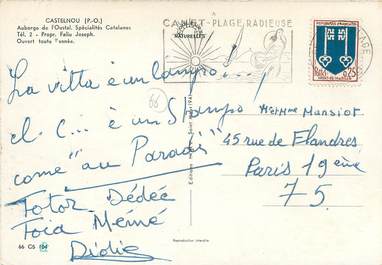 CASTELNOU (P.-O.)
Auberge de l'Oustal. Spécialités Catalanes
Tél. 2 - Propr. Feliu Joseph.
Ouvert toute l'année.
CANET-PLAGE, RADIEUSE
NATURELLES
RÉPUBLIQUE FRANÇAISE
0,25
MONT-DE-MARSAN
La vitta è un
el c... è un
come "au Paradis"
66
Totor Dédée
Toia Mémé
Didie
Mansiot
45 rue de Flandres
Paris 19ème
75
66 CS
Reproduction interdite